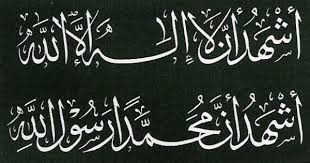 أشهد أن لا إله إلا الله
أشهد أن محمدا رسول الله